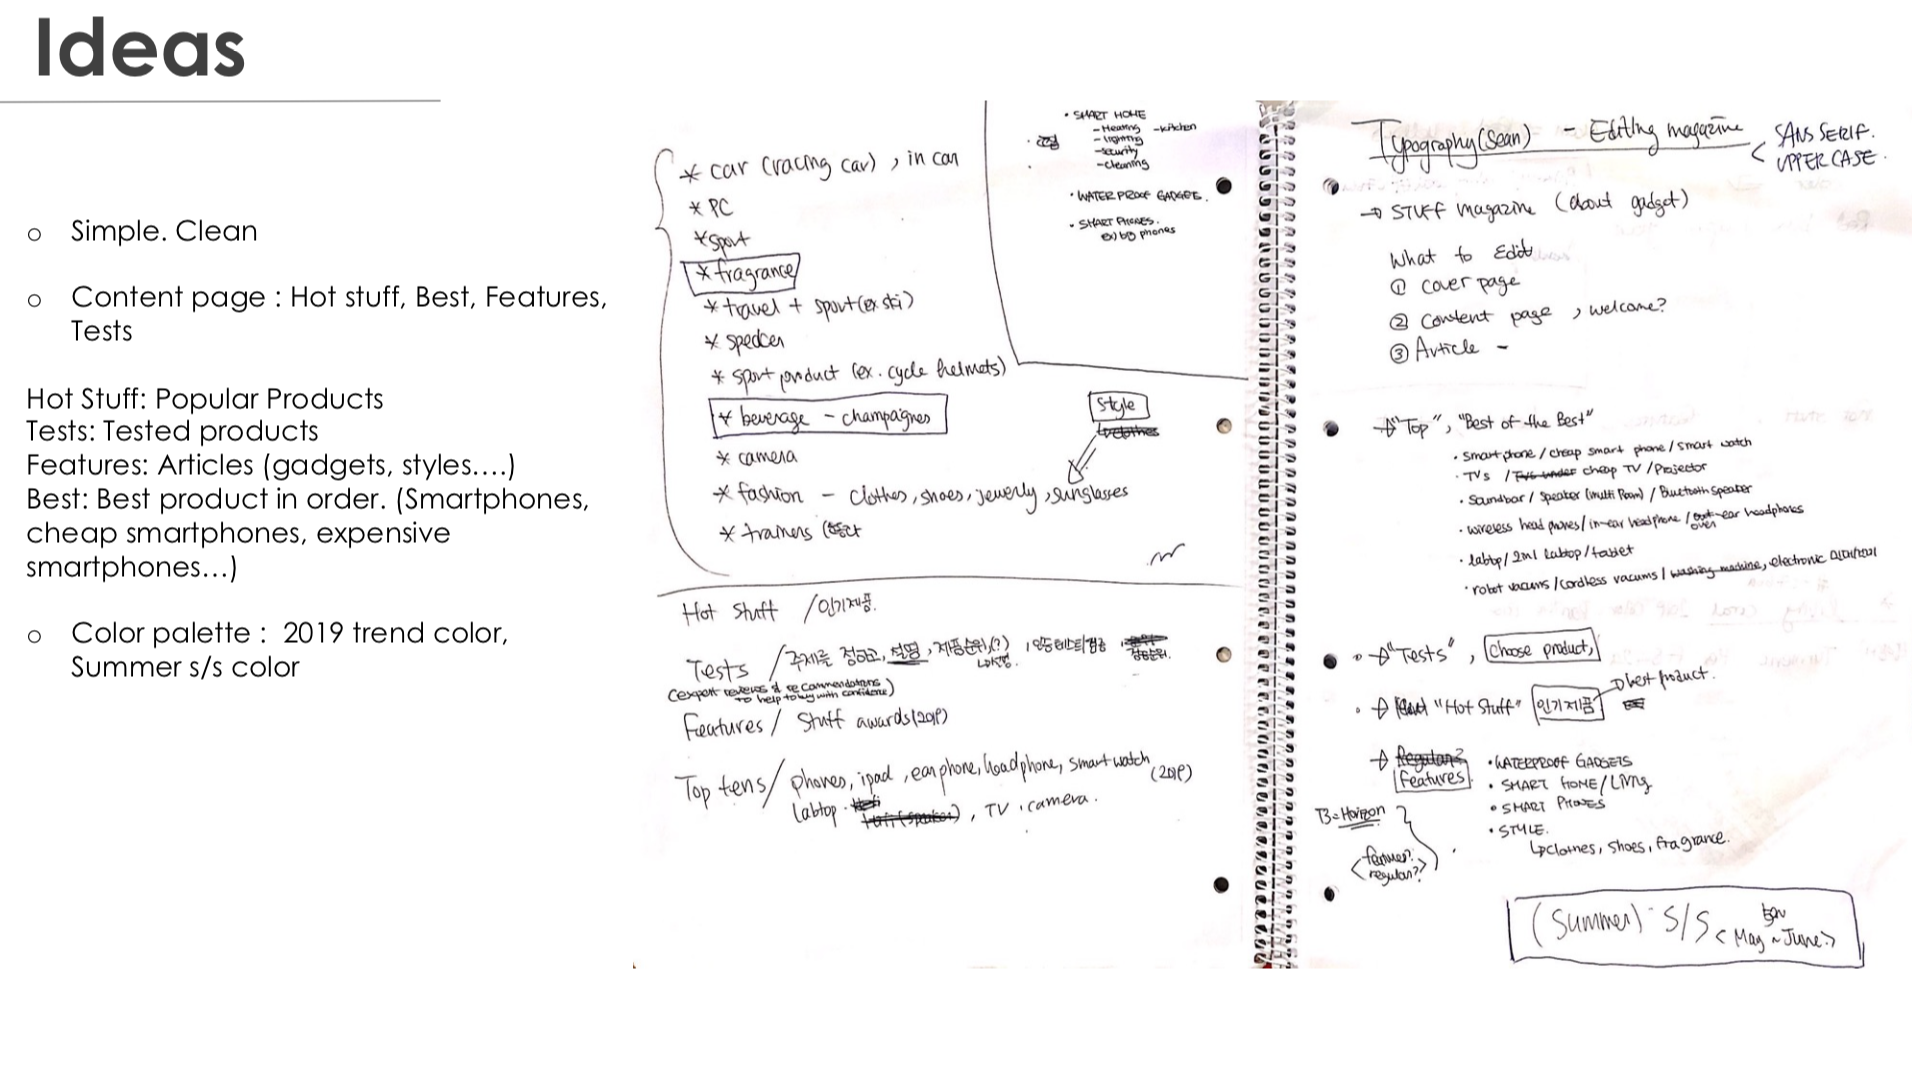 Ideas
o Simple. Clean
o Content page : Hot stuff, Best, Features,
Tests
Hot Stuff: Popular Products
Tests: Tested products
Features: Articles (gadgets, styles....)
Best: Best product in order. (Smartphones,
cheap smartphones, expensive
smartphones...)
o Color palette : 2019 trend color,
Summer s/s color
* car (racing car) , in car
* PC
* sport
* fragrance
* travel + sport (ex ski)
* sport product (ex. cycle helmets)
* beverage - champaignes
* camera
* fashion - clothes, shoes, jewerly, sunglasses
* trainers
• SMART HOME
- Heating - kitchen
- lighting
- security
- cleaning
• WATER PROOF GADGETS.
• SMART PHONES.
ex) big phones
Style
Hot Stuff / 인기제품.
Tests / 주제를 정하고, 설명,
(expert reviews & recommendations
to help to buy with confidence)
Features / Stuff awards (2019)
Top tens / phones, ipad, earphone, headphone, smart watch (2019)
labtop . , TV , camera .
Typography (Sean) - Editing magazine
< SANS SERIF.
UPPER CASE.
→ STUFF magazine (about gadget)
What to Edit
① cover page
② Content page , welcome?
③ Article -
→ "Top", "Best of the Best"
• smart phone / cheap smart phone / smart watch
• TVs / cheap TV / Projector
• Soundbar / speaker (multi Room) / Bluetooth speaker
• wireless head phones / in-ear headphone / over-ear headphones
• labtop / 2in1 labtop / tablet
• robot vacums / cordless vacums / washing machine, electronic
• → "Tests" , Choose product,
• → "Hot Stuff" 인기제품 → best product.
→ Regulars?
Features
• WATERPROOF GADGETS
• SMART HOME / LIVING
• SMART PHONES
• STYLE.
↳ clothes, shoes, fragrance.
T3 = Horizon
< features?
regular? >
(Summer) S/S < May ~ June >